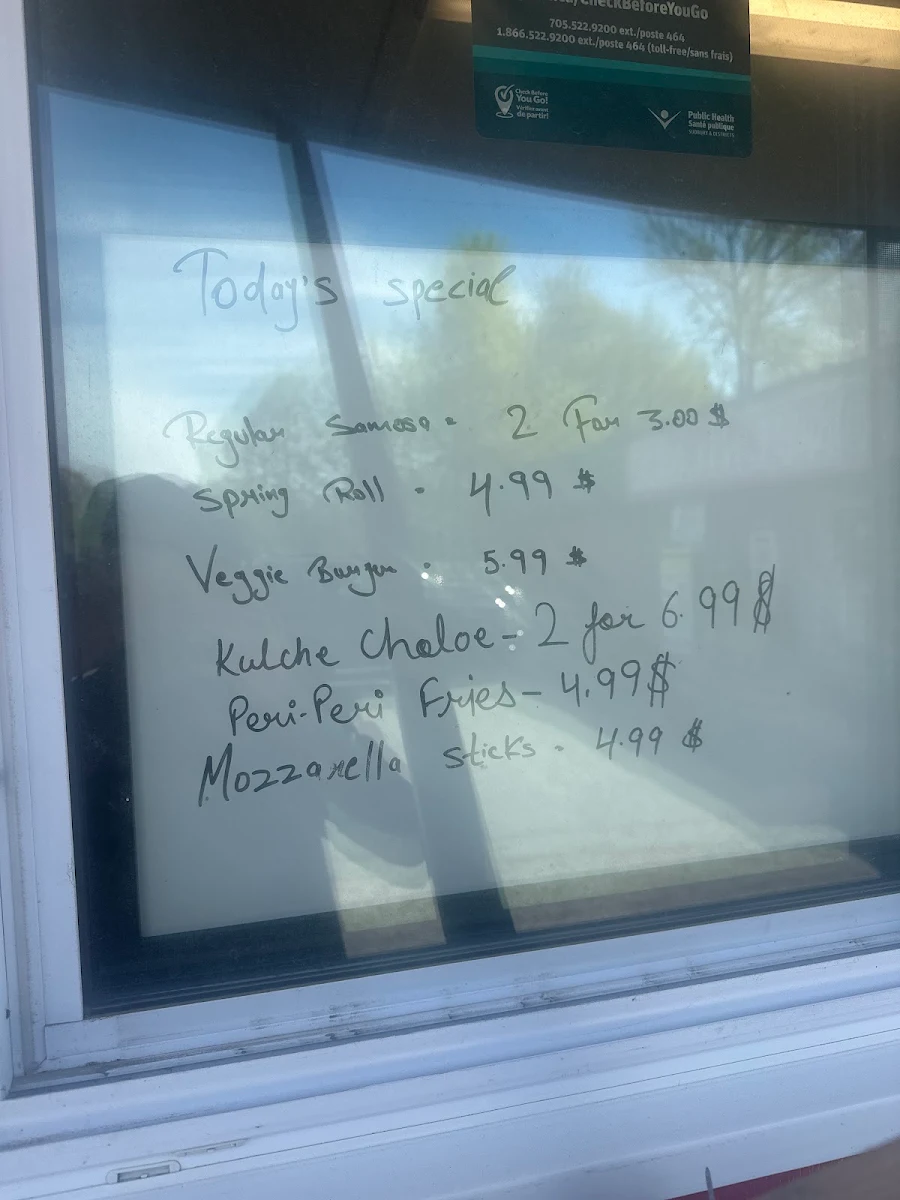 CheckBeforeYouGo
705.522.9200 ext./poste 464
1.866.522.9200 ext./poste 464 (toll-free/sans frais)
Check Before
You Go!
Vérifiez avant
de partir!
Public Health
Santé publique
SUDBURY & DISTRICTS
Today's special
Regular Samosa - 2 For 3.00 $
Spring Roll - 4.99 $
Veggie Burger : 5.99 $
Kulche Choloe - 2 for 6.99 $
Peri-Peri Fries - 4.99 $
Mozzarella sticks - 4.99 $